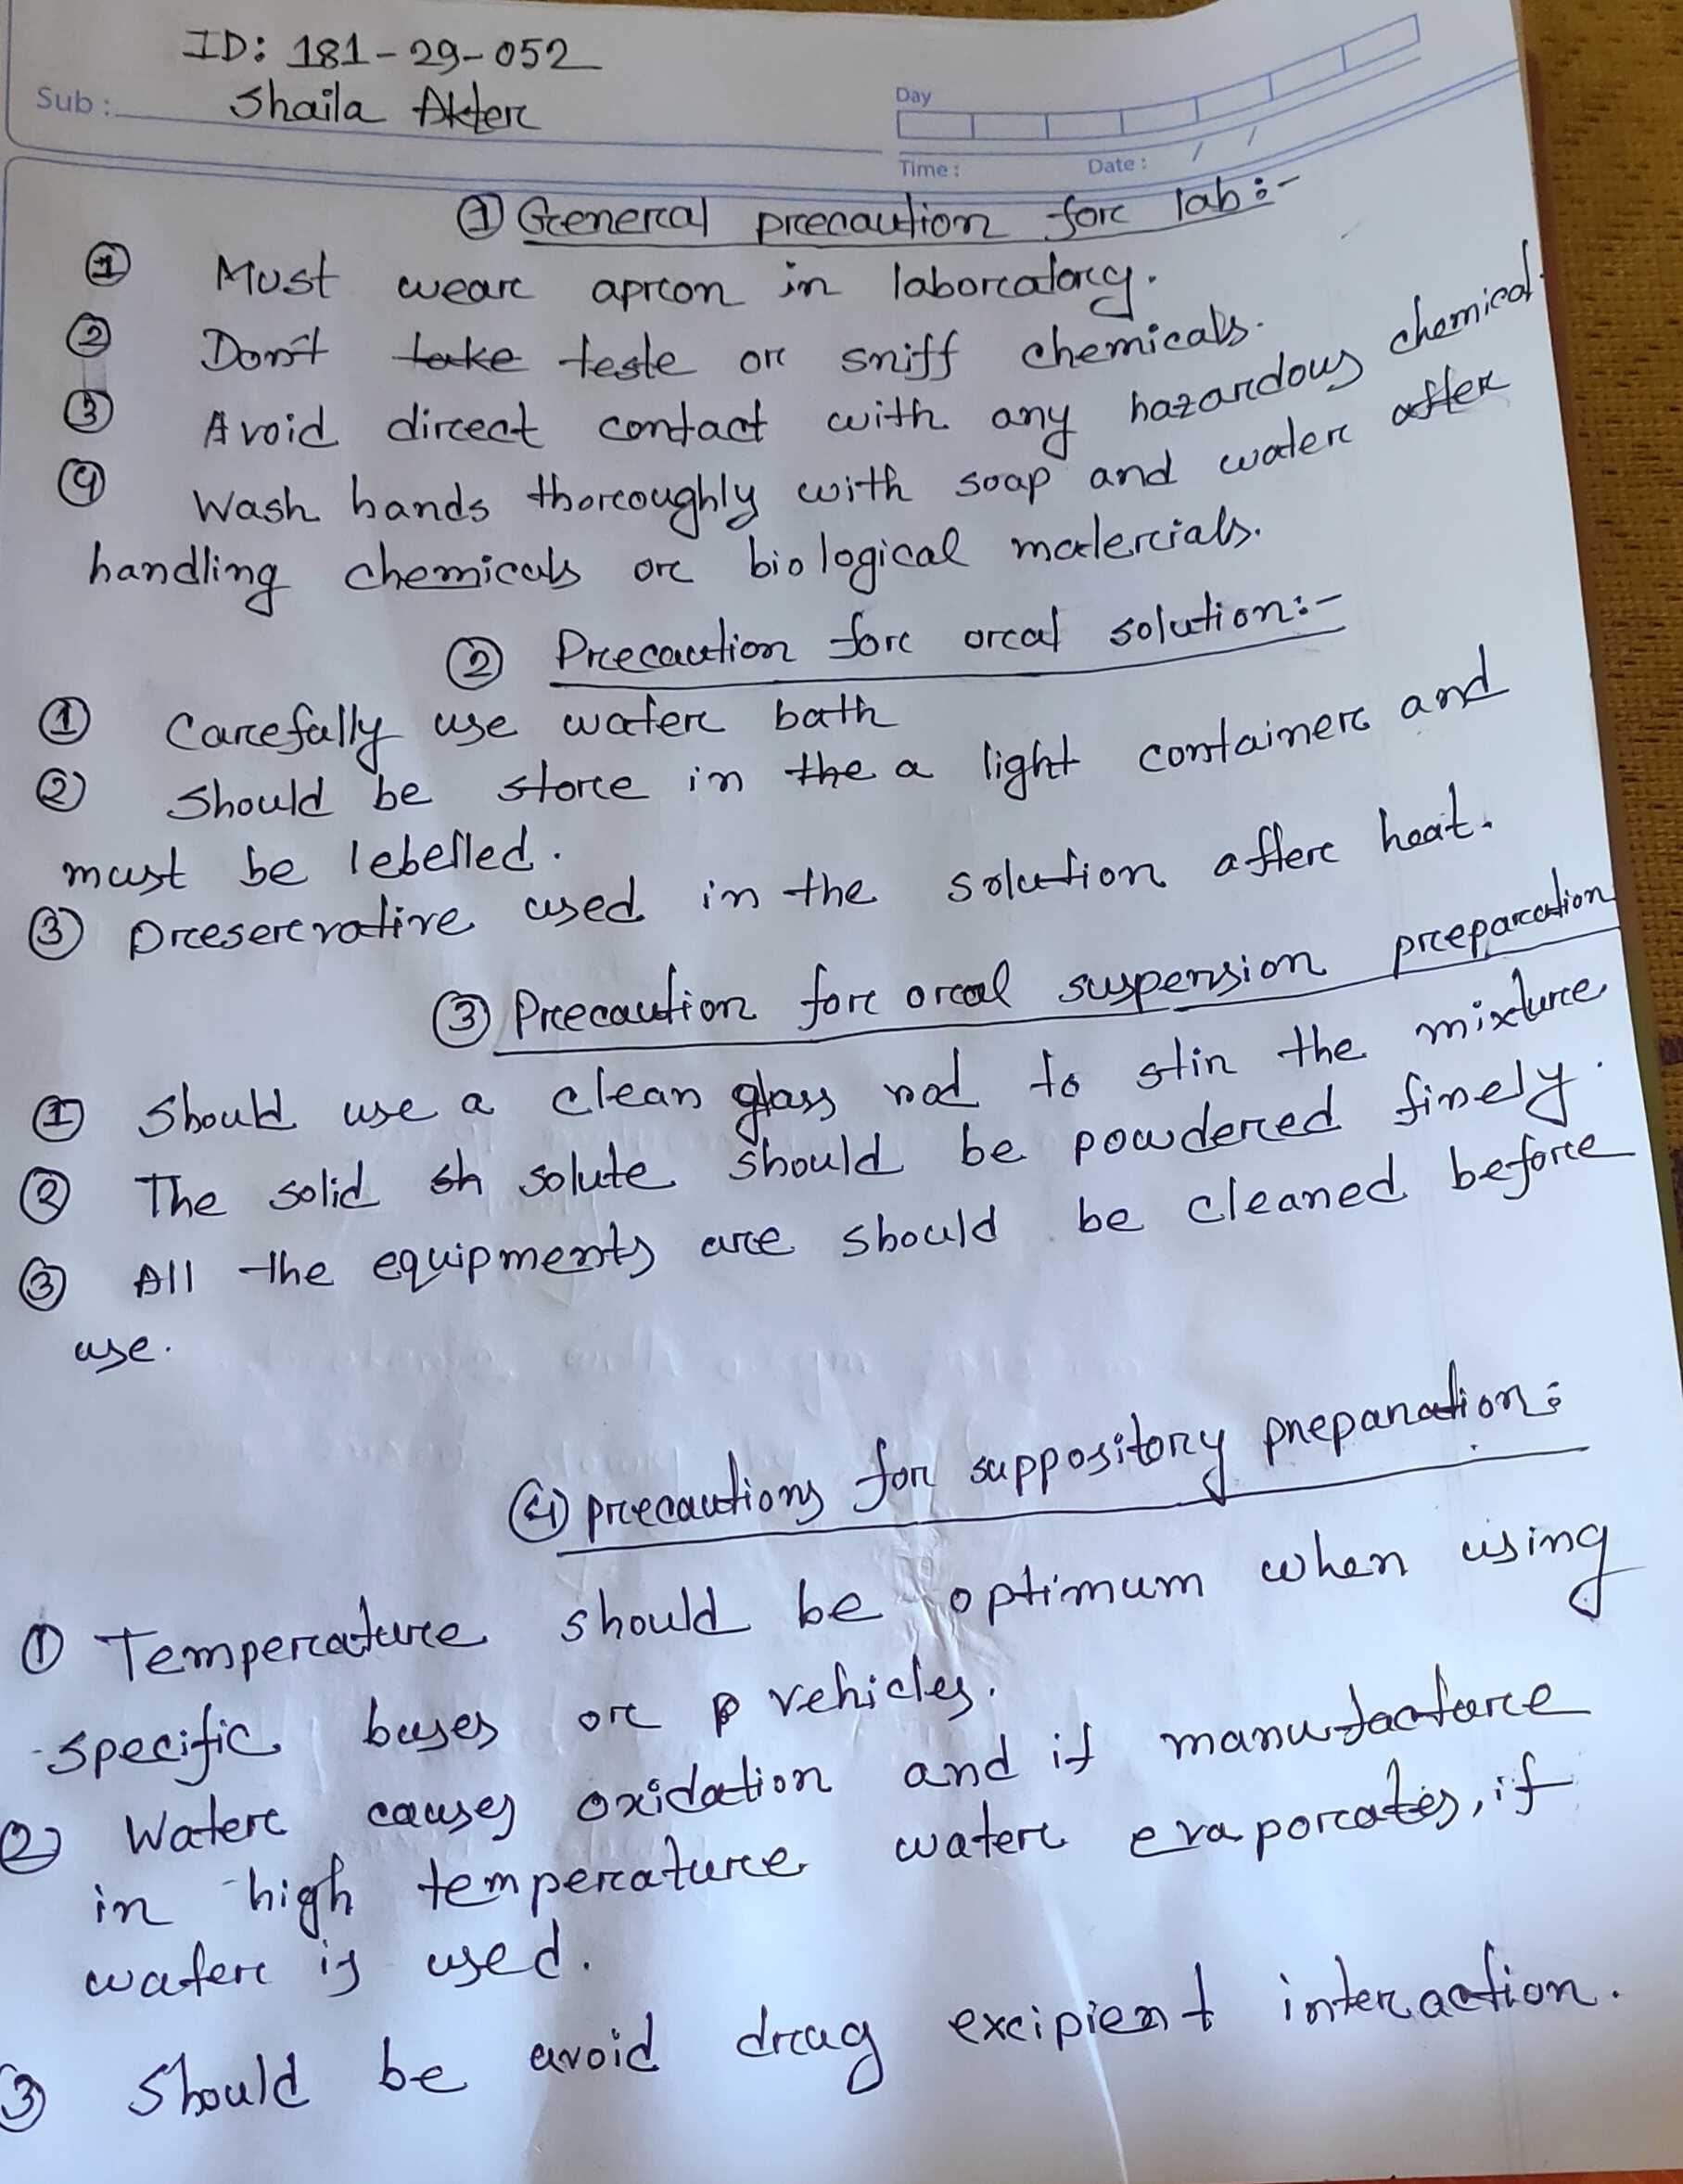 ID: 181-29-052
Sub: Shaila Akter
Day
Time: Date: / /
① General precaution for lab:-
① Must wear apron in laboratory.
② Don't take teste or sniff chemicals.
③ Avoid direct contact with any hazardous chemical.
④ Wash hands thoroughly with soap and water after
handling chemicals or biological materials.
② Precaution for oral solution:-
① Carefully use water bath
② Should be store in the a light container and
must be lebelled.
③ preservative used in the solution after heat.
③ Precaution for oral suspension preparation
① Should use a clean glass rod to stir the mixture
② The solid sh solute should be powdered finely.
③ All the equipments are should be cleaned before
use.
④ precautions for suppository preparation:
① Temperature should be optimum when using
specific bases or p vehicles.
② Water causes oxidation and if manufacture
in high temperature water evaporates, if
water is used.
③ Should be avoid drug excipient interaction.